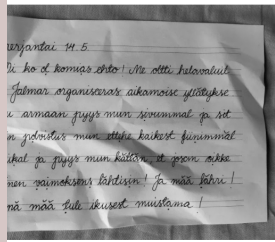 perjantai 14.5.
ko ol komias ehto! Me oltti helavaluil
Jalmar organiseeras aikamoise yllätykse
armaan pyys mun sivummal ja sit
polvistus mun ettehe kaikest fiinimmäl
ja pyys mun kättän, et josen oikke
vaimoksens lähtisin! Ja mää lähri!
mää tule ikusest muistama!